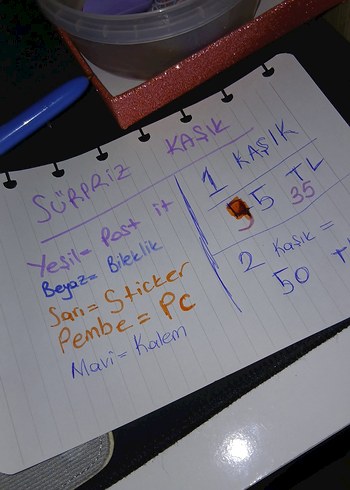 SÜRPRİZ KAŞIK
Yeşil= Post it
Beyaz= Bileklik
Sarı= Sticker
Pembe= PC
Mavi= Kalem
1 KAŞIK
5 TL
35
2 Kaşık =
50 TL